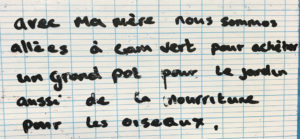 avec ma mère nous sommes
allées à Gam vert pour achéter
un grand pot pour le jardin
aussi de la nourriture
pour les oiseaux.